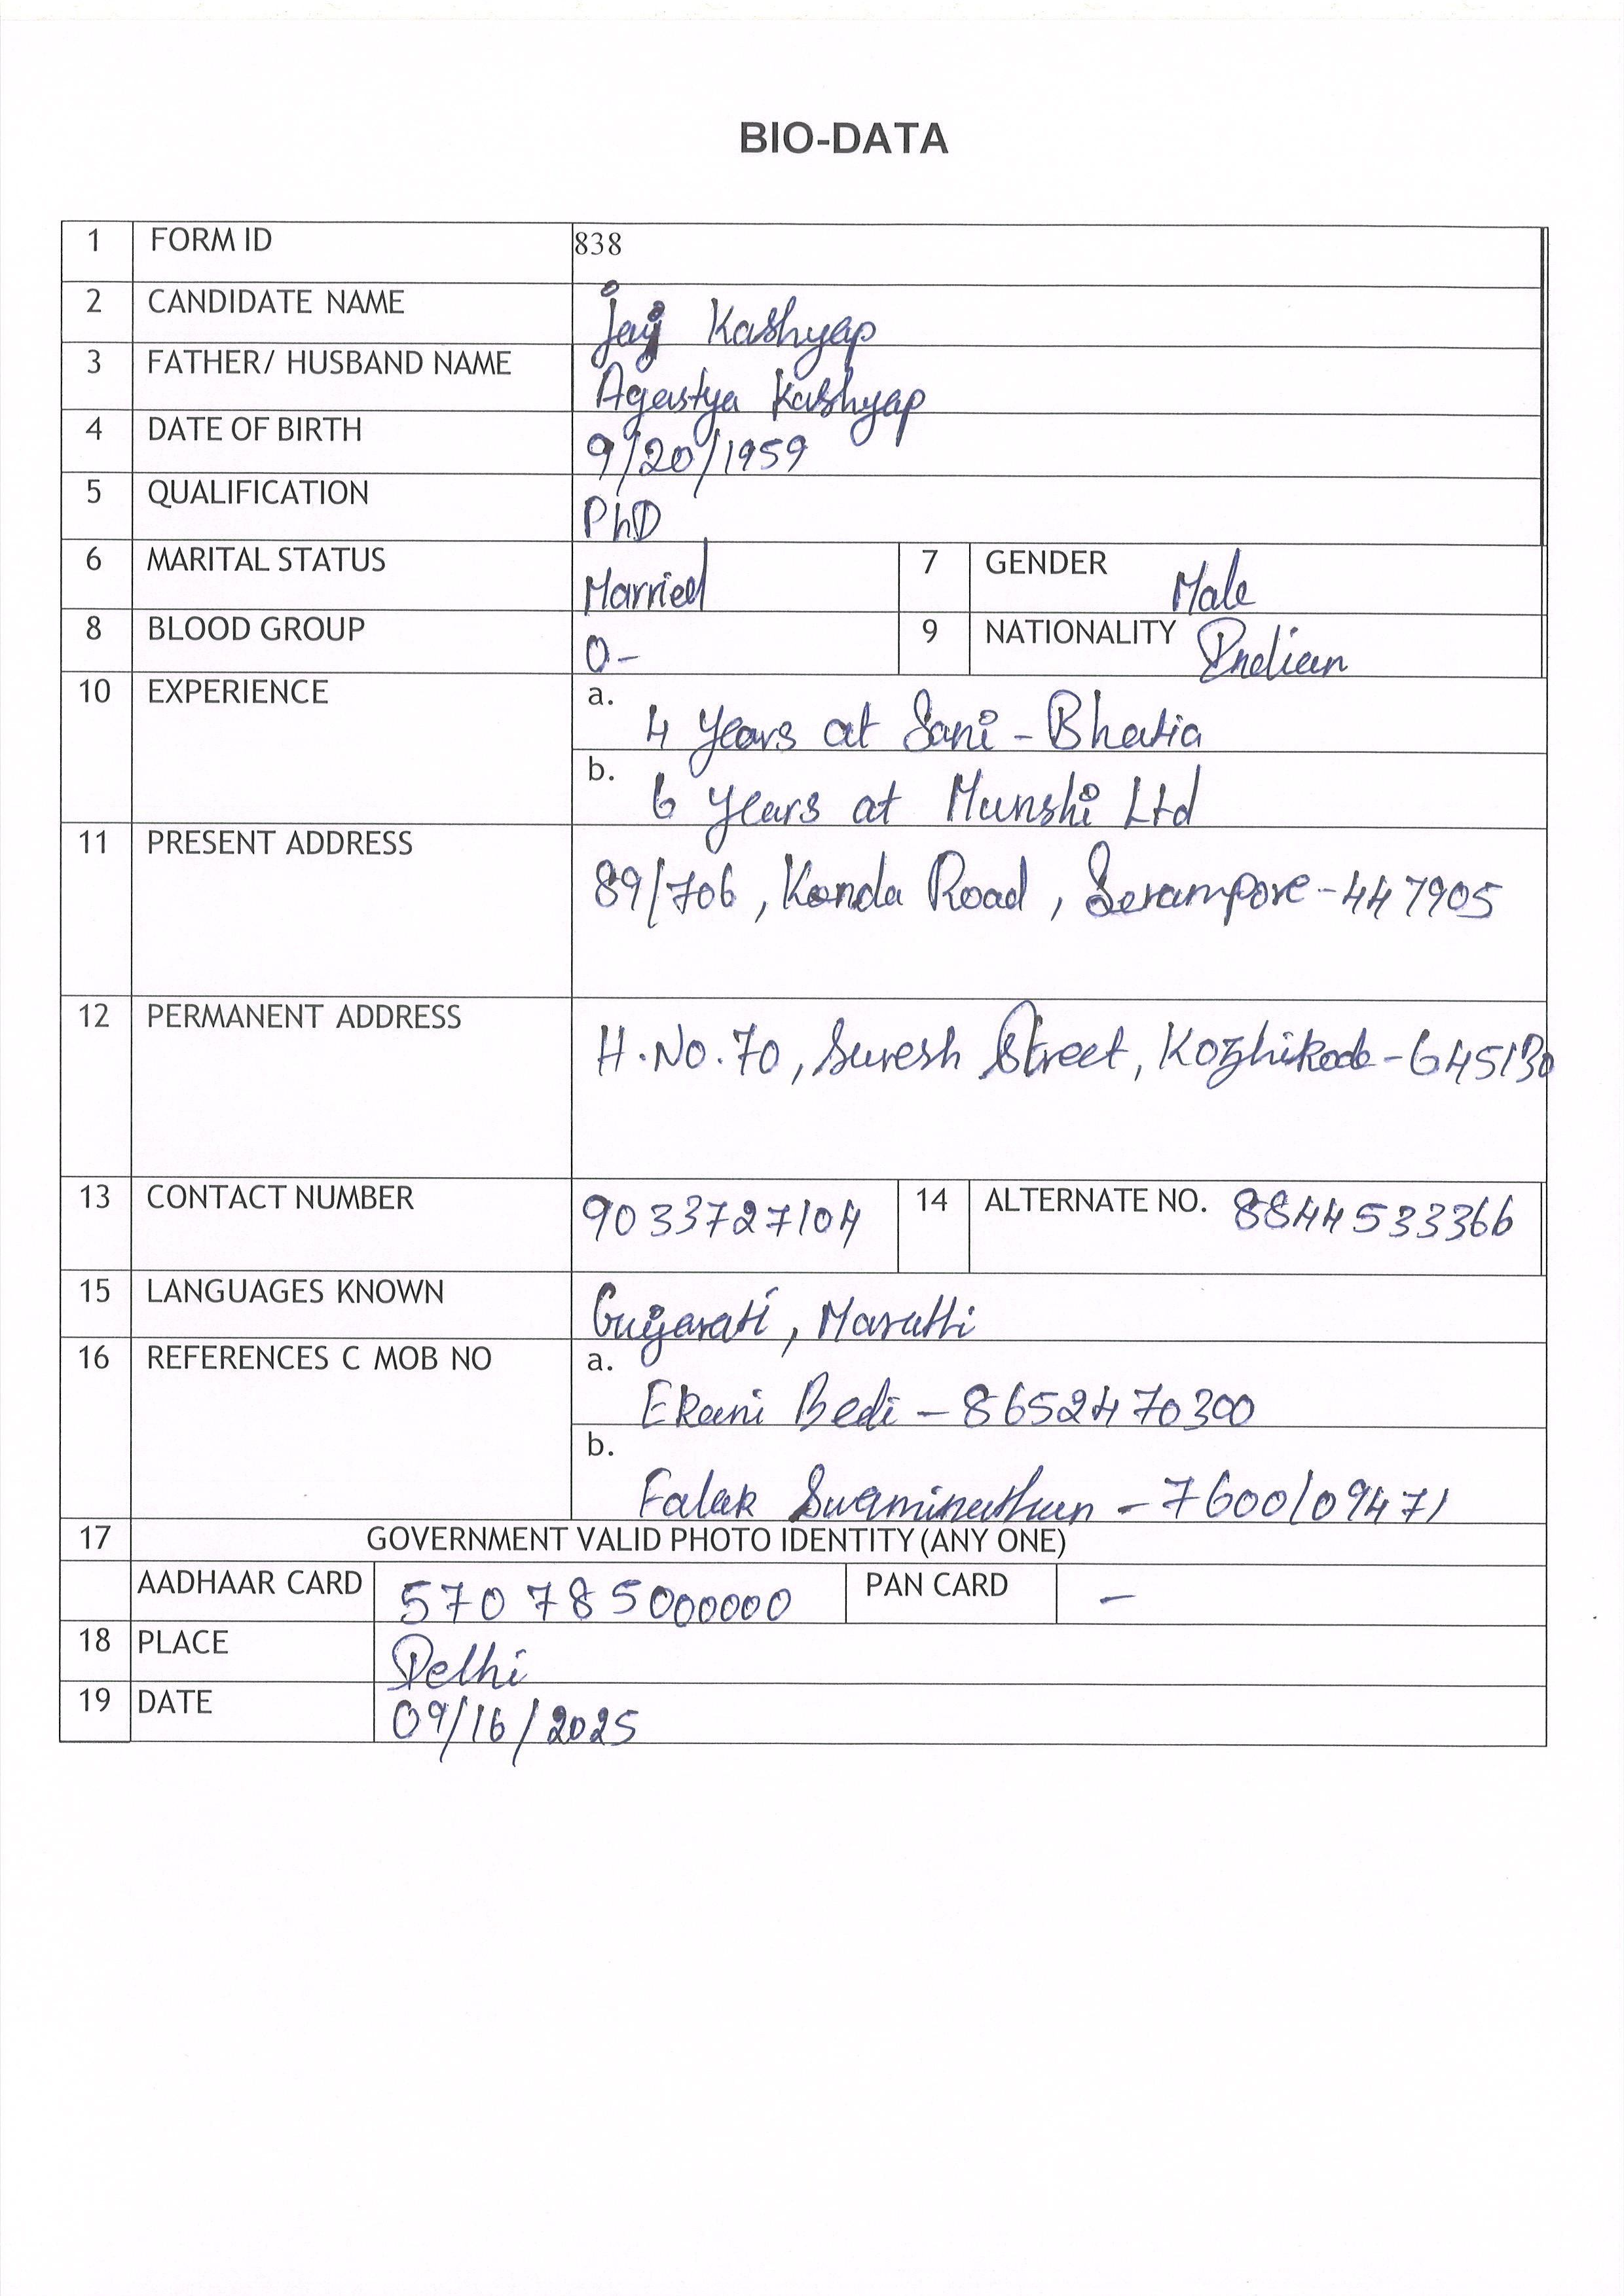 BIO-DATA
1 FORM ID 838
2 CANDIDATE NAME Kashyap
3 FATHER/ HUSBAND NAME Agastya Kashyap
4 DATE OF BIRTH 9/20/1959
5 QUALIFICATION PhD
6 MARITAL STATUS Married 7 GENDER Male
8 BLOOD GROUP O- 9 NATIONALITY Indian
10 EXPERIENCE a. 4 years at Sani - Bhatia
b. 6 years at Munshi Ltd
11 PRESENT ADDRESS 89/706, Konda Road, Serampore-447905
12 PERMANENT ADDRESS H.No.70, Suresh Street, Kozhikode-645130
13 CONTACT NUMBER 9033727104 14 ALTERNATE NO. 8844533366
15 LANGUAGES KNOWN Gujarati, Marathi
16 REFERENCES C MOB NO a. Ekani Bedi - 8652470300
b. Falak Swaminathan - 7600109471
17 GOVERNMENT VALID PHOTO IDENTITY (ANY ONE)
AADHAAR CARD 570785000000 PAN CARD -
18 PLACE Delhi
19 DATE 09/16/2025